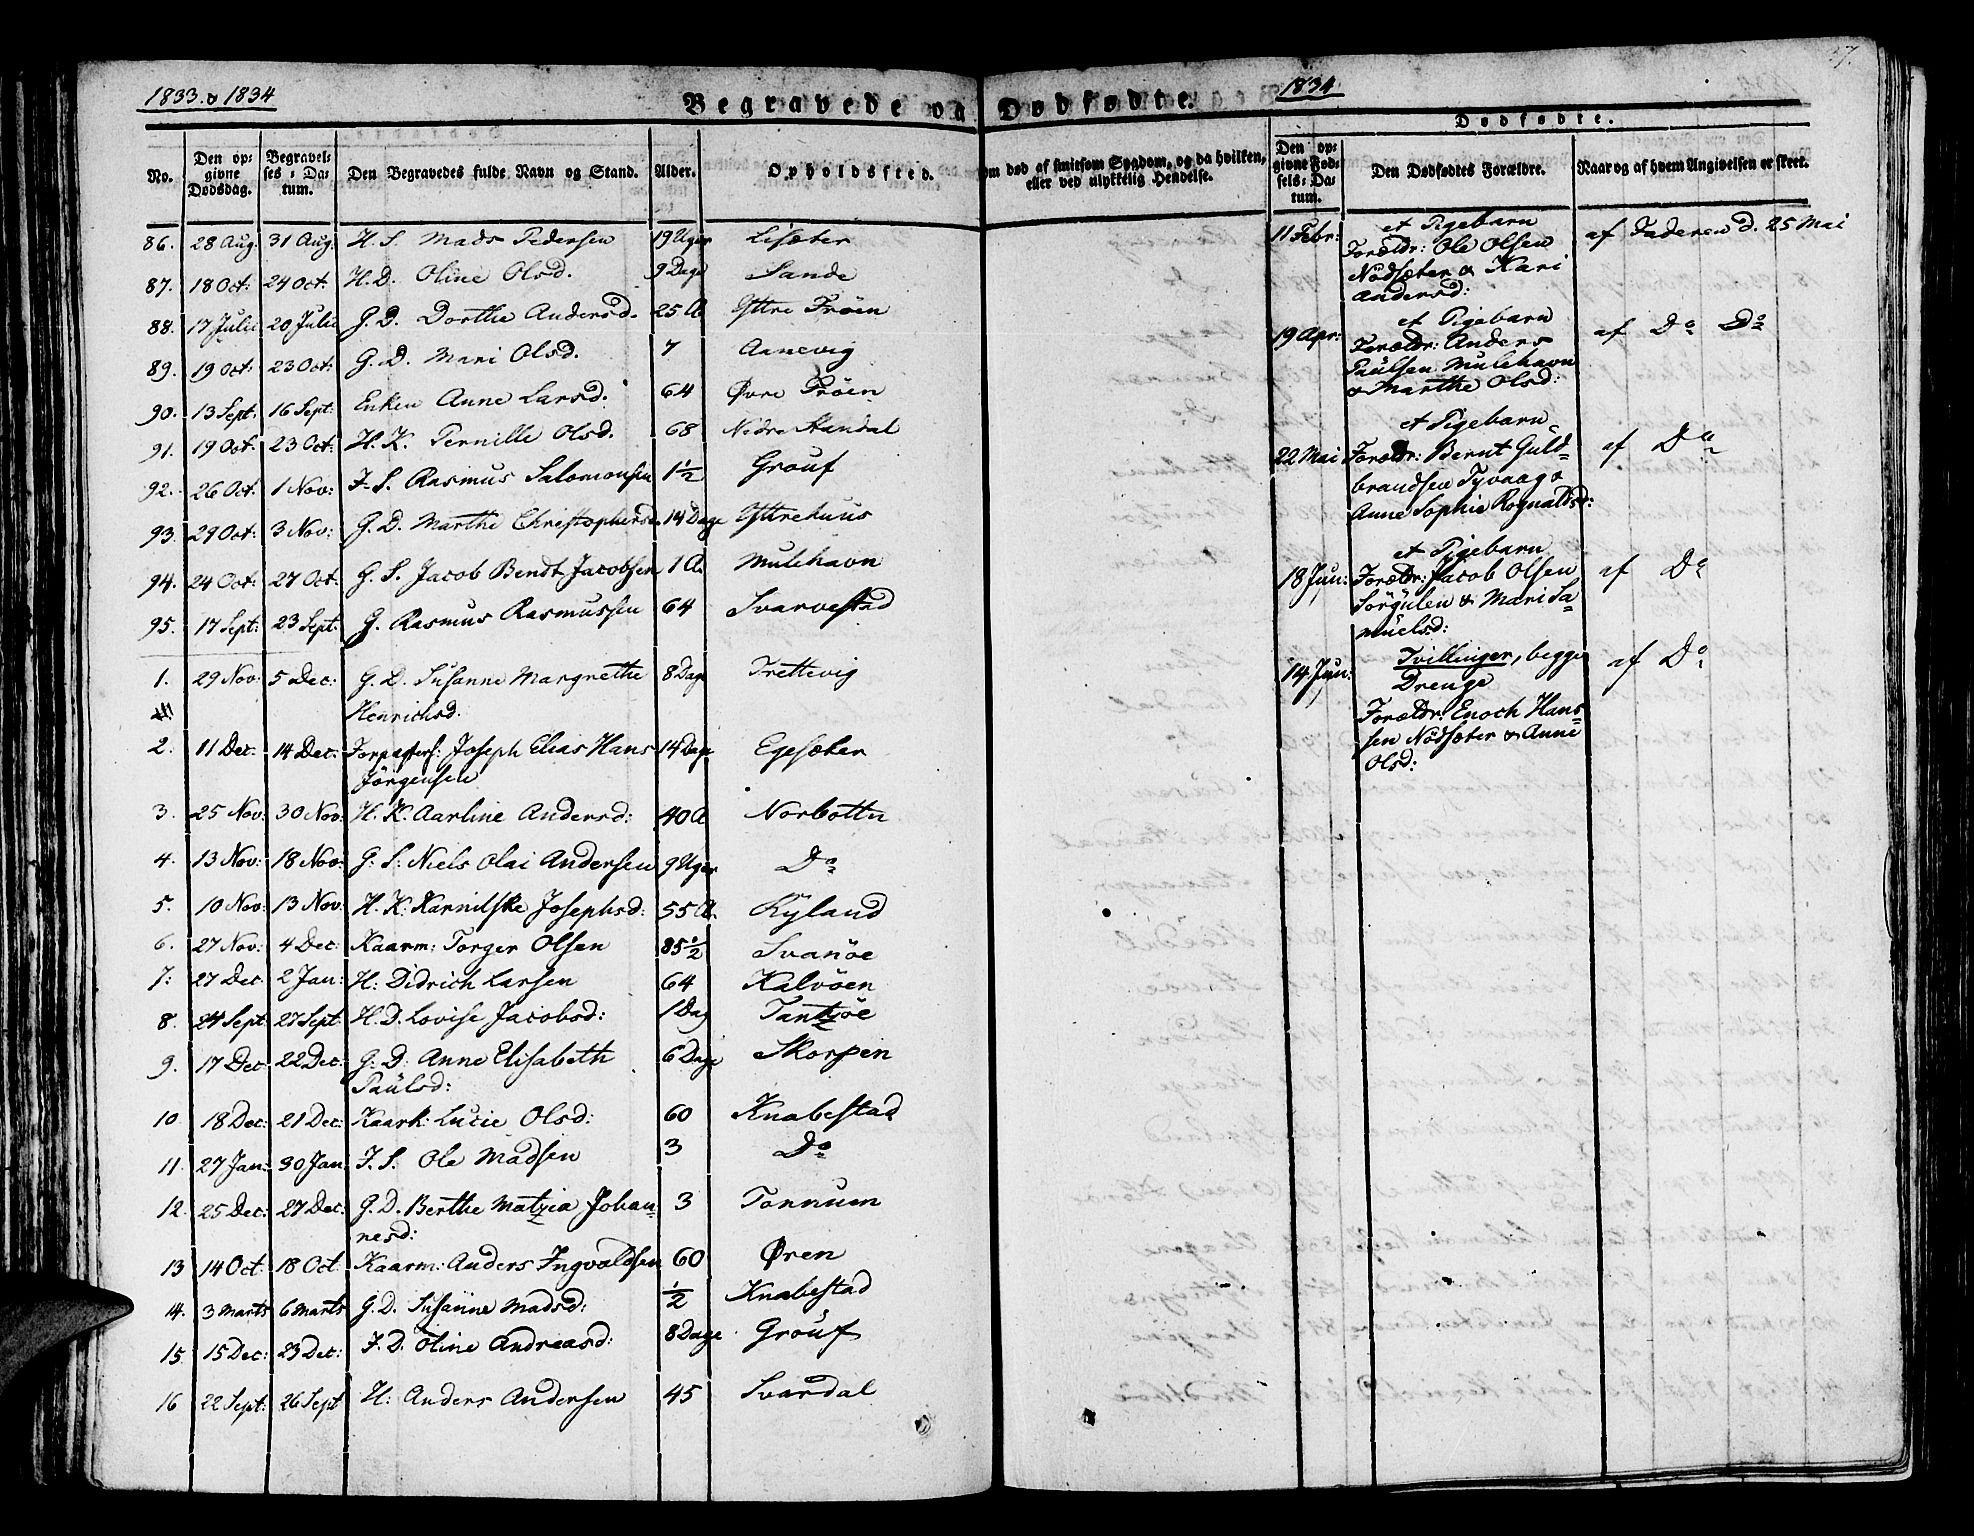 1833. & 1834
Begravede og Dødfødte.
1834
27.
No.
Den opgivne Dødsdag.
Begravelses-Datum.
Den Begravedes fulde Navn og Stand.
Alder.
Opholdssted.
Om død af smitsom Sygdom, og da hvilken, eller ved ulykkelig Hendelse.
Dødfødte.
Den opgivne Fødsels-Datum.
Den Dødfødtes Forældre.
Naar og af hvem Angivelsen er skeet.
86. 28 Aug. 31 Aug. H. S. Mads Pedersen 19 Uger Lisæter
87. 18 Oct: 24 Oct. H. D. Oline Olsd. 9 Dage Sande
88. 17 Julii 20 Julii G. D. Dorthe Andersd. 25 A Yttre Frøen
89. 19 Oct: 23 Oct: G. D. Mari Olsd. 7 Aanevig
90. 13 Sept. 16 Sept. Enken Anne Larsd. 64 Øvre Frøen
91. 19 Oct. 23 Oct: H. K. Pernille Olsd. 68 Nedre Standal
92. 26 Oct. 1 Nov: F. S. Rasmus Salomonsen 1½ Grouf
93. 29 Oct: 3 Nov: G. D. Marthe Christophersd. 14 Dage Yttrehuus
94. 24 Oct: 27 Oct: G. S. Jacob Bendt Jacobsen 1 A. Mulehavn
95. 17 Sept: 23 Sept. G. Rasmus Rasmussen 64 Svarvestad
1. 29 Nov: 5 Dec: G. D. Susanne Margrethe 8 Dage Trettevig
Henrichsd.
2. 11 Dec. 14 Dec: Forpagters: Joseph Elias Hans 14 Dage Egesæter
Jörgensen
3. 25 Nov: 30 Nov: H. K. Aarline Andersd: 40 A Norbotten
4. 13 Nov: 18 Nov: G: S: Niels Olai Andersen 9 Uger Do
5. 10 Nov: 13 Nov: H. K: Karnilske Josephsd: 55 A. Ryland
6. 27 Nov: 4 Dec: Kaarm: Torger Olsen 85½ Svanøe
7: 27 Dec 2 Jan: H: Didrich Larsen 64 Kalvöen
8. 24 Sept 27 Sept. H. D. Lovise Jacobsd: 1 Dag Tantzöe
9. 17 Dec 22 Dec: G: D: Anne Elisabeth 6 Dage Skorpen
Paülsd:
10 18 Dec: 21 Dec: Kaark: Lucie Olsd: 60 Knabestad
11. 27 Jan: 30 Jan F. S. Ole Madsen 3 Do
12. 25 Dec: 27 Dec: G. D. Berthe Matzia Johan- 3 Tonnum
nesd:
13 14 Oct. 18 Oct. Kaarm: Anders Ingvaldsen 60 Øren
14. 3 Marts 6 Marts G. D. Susanne Madsd: ½ Knabestad
15. 15 Dec: 23 Dec: F. D. Oline Andreasd: 8 Dage Grouf
16 22 Sept: 26 Sept H: Anders Andersen 45 Svardal
11 Febr: et Pigebarn af Faderen d. 25 Mai
Forældr: Ole Olsen
Nödsæter & Kari
Andersd:
19 Apr: et Pigebarn af Do Do
Forældr: Anders
Paülsen Mulehavn
& Marthe Olsd:
22 Mai et Pigebarn af Do
Forældr: Bernt Guld-
brandsen Tyvaag &
Anne Sophie Rognaldsd:
18 Jun: et Pigebarn af Do
Forældr: Jacob Olsen
Sörgulen & Mari Sa-
muelsd:
14 Jun: Tvillinger, begge af Do
Drenge
Forældr: Enoch Hans-
sen Nödsæter & Anne
Olsd: